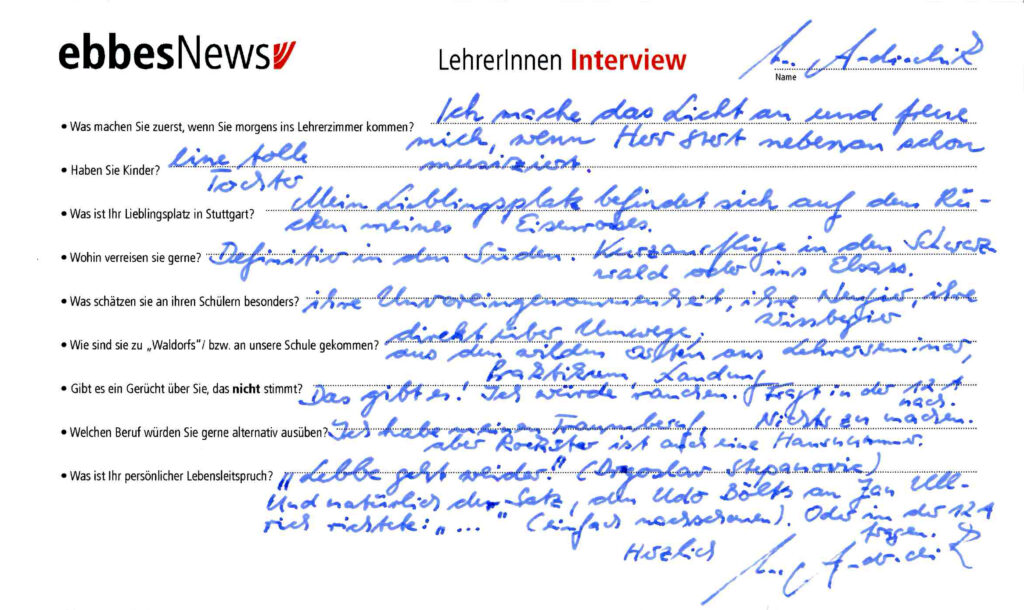 ebbesNews
LehrerInnen Interview
Name
• Was machen Sie zuerst, wenn Sie morgens ins Lehrerzimmer kommen? Ich mache das Licht an und freue
mich, wenn Herr nebenan schon
musiziert.
• Haben Sie Kinder? Eine tolle
Tochter
• Was ist Ihr Lieblingsplatz in Stuttgart? Mein Lieblingsplatz befindet sich auf dem Rü-
cken meines Eisenrosses.
• Wohin verreisen sie gerne? Definitiv in den Süden. Kurzausflüge in den Schwarz
wald oder ins Elsass.
• Was schätzen sie an ihren Schülern besonders? ihre Unvoreingenommenheit, ihre Neugier, ihre
Wissbegier
• Wie sind sie zu „Waldorfs"/ bzw. an unsere Schule gekommen? direkt über Umwege.
aus dem wilden Osten ans Lehrerseminar,
Praktikum, Landung
• Gibt es ein Gerücht über Sie, das nicht stimmt? Das gibt es! Ich würde rauchen. Fragt in der 12 1
nach.
• Welchen Beruf würden Sie gerne alternativ ausüben? Ich habe meinen Traumberuf. Nichts zu machen.
aber Rockstar ist auch eine Hausnummer.
• Was ist Ihr persönlicher Lebensleitspruch? „Lebbe geht weider." (Dragoslav Stepanovic)
Und natürlich der Satz, den Udo Bölts an Jan Ull-
rich richtete: „..." (einfach nachschauen). Oder in der 12 1
fragen.
Herzlich